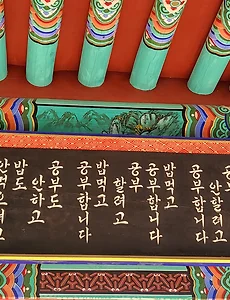 공부
안할려고
공부합니다
밥먹고
공부합니다
공부
할려고
밥먹고
공부합니다
공부도
안하고
밥도